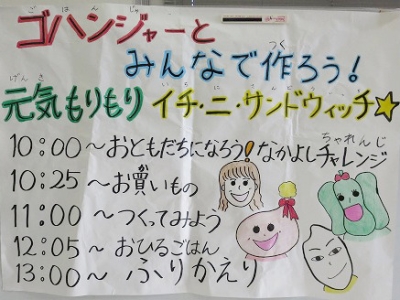 ごはんじゃー
ゴハンジャーと
つく
みんなで作ろう！
げんき
元気もりもり イチ・ニ・サンドウィッチ☆
10:00〜おともだちになろう！なかよしチャレンジ
ちゃれんじ
10:25〜お買いもの
11:00〜つくってみよう
12:05〜おひるごはん
13:00〜ふりかえり